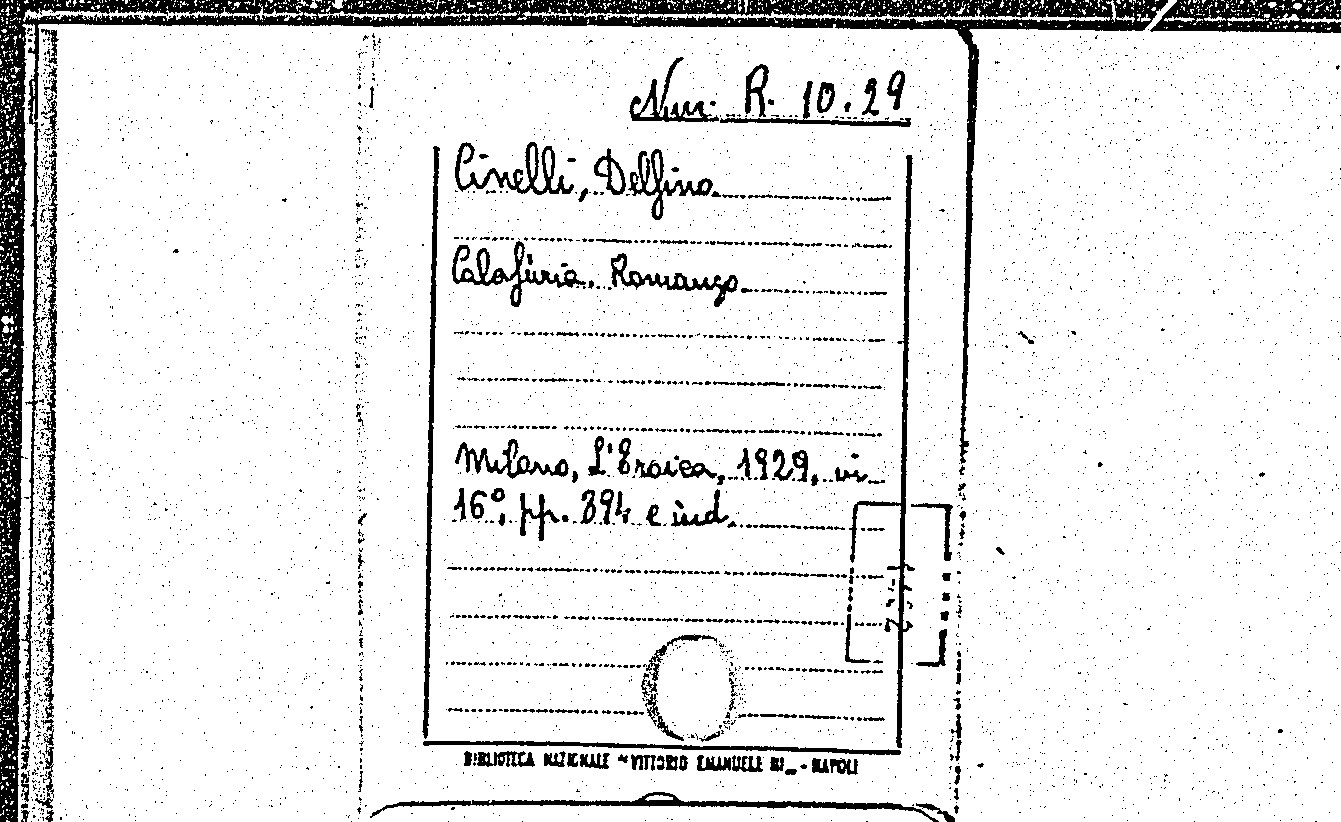 Nur. R. 10.29
Cinelli, Delfino.
Calafùria. Romanzo.
Milano, L'Eroica, 1929, in
16°, pp. 394 e ind.
BIBLIOTECA NAZIONALE "VITTORIO EMANUELE III„ - NAPOLI